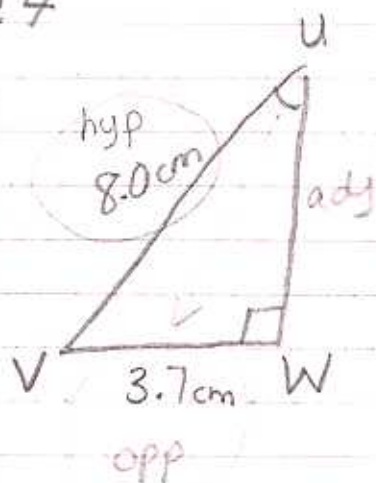 U
hyp
8.0cm
adj
V
3.7cm
W
opp